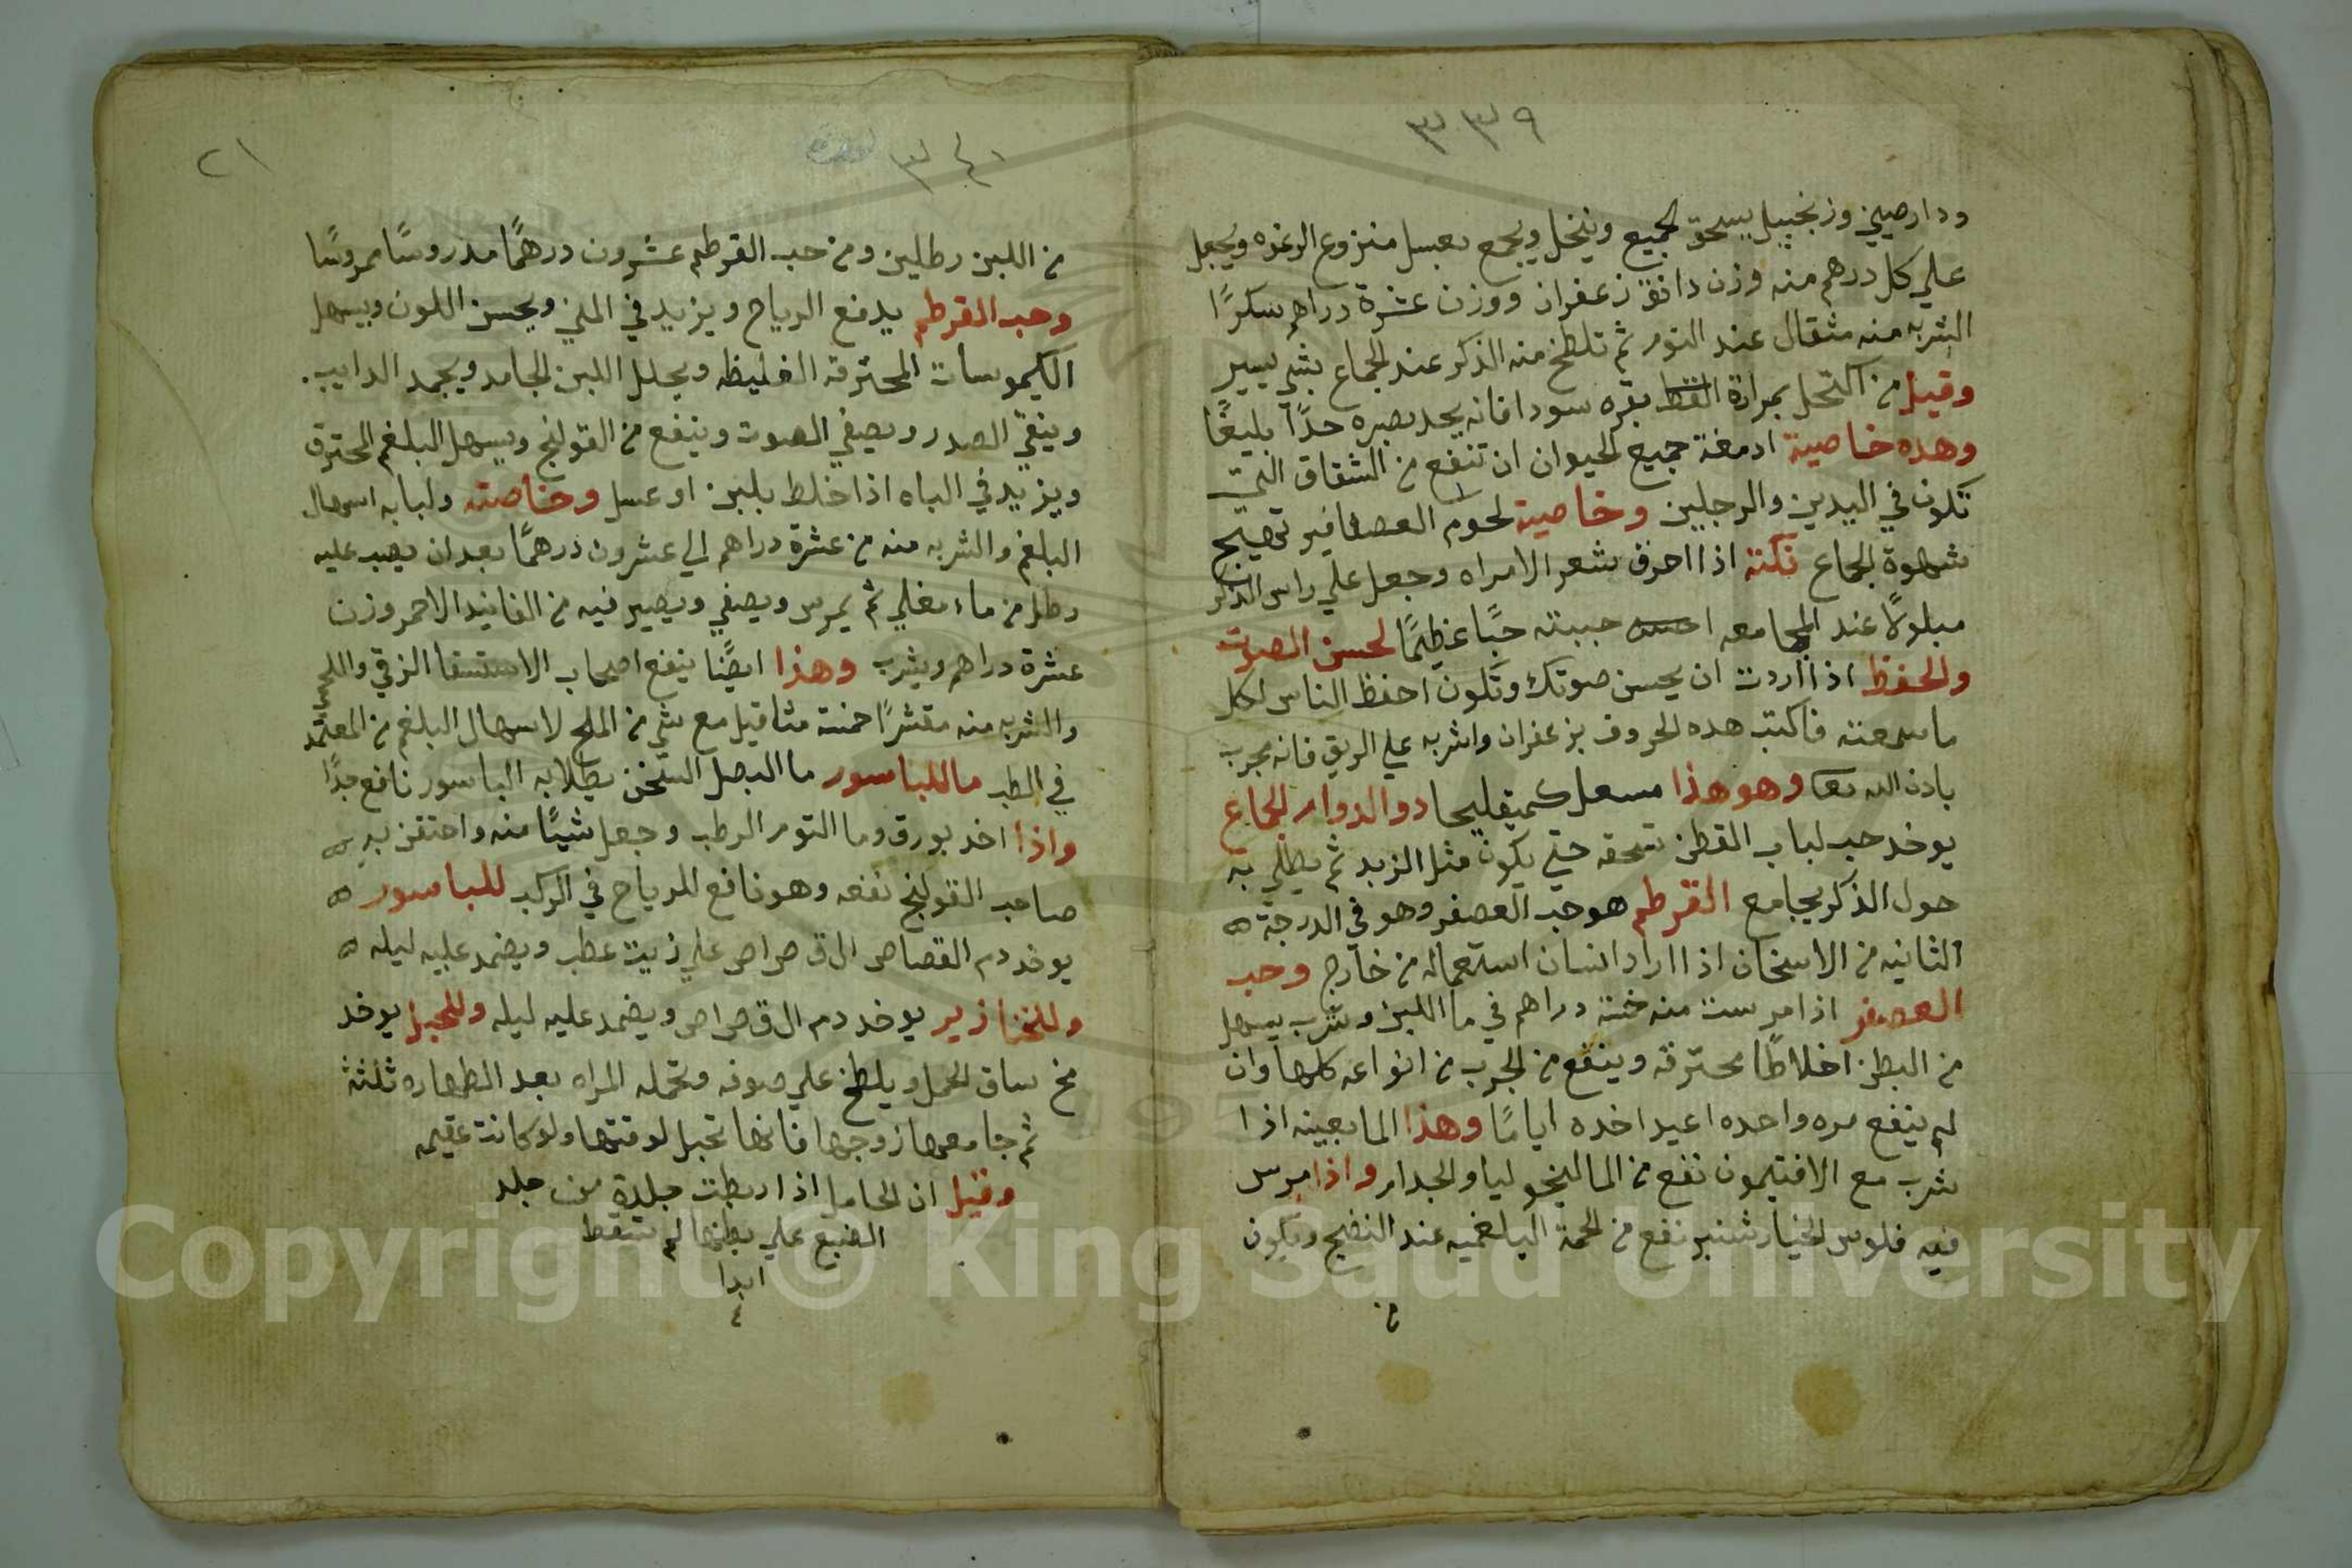 ٣٣٩
ودارصيني وزنجبيل يسحق الجميع وينخل ويجمع بعسل منزوع الرغوه ويجعل
علي كل درهم منه وزن دانق زعفران ووزن عشرة دراهم سكرًا
الشربه منه مثقال عند النوم ثم تلطخ منه الذكر عند الجماع بشي يسير
وقيل من اكتحل بمرارة بقره سودا فانه يحد بصره حدًا بليغًا
وهده خاصية ادمغة جميع الحيوان ان تنفع من الشقاق التي
تكون في اليدين والرجلين وخاصية لحوم العصافير تهيج
شهوة الجماع نكته اذا احرق شعر الامراه وجعل علي راس الذكر
مبلولًا عند المجامعه احبته حبًا عظيمًا لحسن الصوت
والحفظ اذا اردت ان يحسن صوتك وتكون احفظ الناس لكل
ما سمعته فاكتب هده الحروف بزعفران واشربه علي الريق فانه مجرب
بادن الله تعا وهو هذا دوا لدوام الجماع
يوخد حب لباب القطن تسحقه حتي يكون مثل الزبد ثم يطلي به
حول الذكر يجامع القرطم هو حب العصفر وهو في الدرجة ه
الثانيه من الاسخان اذا اراد انسان استعماله من خارج وحب
العصفر اذا مرست منه خمسة دراهم في ما اللبن وشرب يسهل
من البطن اخلاطًا محترقه وينفع من الجرب من انواعه كلها وان
لم ينفع مره واحده اعيد اخده ايامًا وهذا الما بعينه اذا
شرب مع الافتيمون نفع من الماليخوليا والجدام واذا مرس
فيه فلوس الخيار شنبر نفع من الحمة البلغميه عند النضج ويكون
من
٢١
٣٤٠
من اللبن رطلين ومن حب القرطم عشرون درهمًا مدروسًا ممروسًا
وحب القرطم يدفع الرياح ويزيد في المني ويحسن اللون ويسهل
الكيموسات المحترقه الغليظه ويحلل اللبن الجامد ويجمد الدايب.
وينقي الصدر ويصفي الصوت وينفع من القولنج ويسهل البلغم المحترق
ويزيد في الباه اذا خلط بلبن او عسل وخاصته ولبابه اسهال
البلغم والشربه منه من عشرة دراهم الي عشرون درهمًا بعد ان يصب عليه
رطل من ماء مغلي ثم يمرس ويصفي ويصير فيه من الفانيد الاحمر وزن
عشرة دراهم ويشرب وهذا ايضًا ينفع اصحاب الاستسقا الزقي واللحمي
والشربه منه مقشرًا خمسة مثاقيل مع شي من الملح لاسهال البلغم من المعتمد
في الطب ما للباسور ما البصل السخن يطلا به الباسور نافع جدًا
واذا اخد بورق وما التوم الرطب وجعل شيًا منه واحتقن به ه
صاحب القولنج نفعه وهو نافع للرياح في الركب للباسور ه
يوخد دم القصاص ال ق ص ا ص علي زيت عطب ويضمد عليه ليله ه
وللخنازير يوخد دم ال ق ص ا ص ويضمد عليه ليله وللحبل يوخد
مخ ساق الحمل ويلطخ علي صوفه وتحمله المراه بعد الطهاره ثلثة
ثم جامعها زوجها فانها تحبل لوقتها ولو كانت عقيمه
وقيل ان الحامل اذا ربطت جلدة من جلد
الضبع علي بطنها لم تسقط
ابدا
Copyright © King Saud University